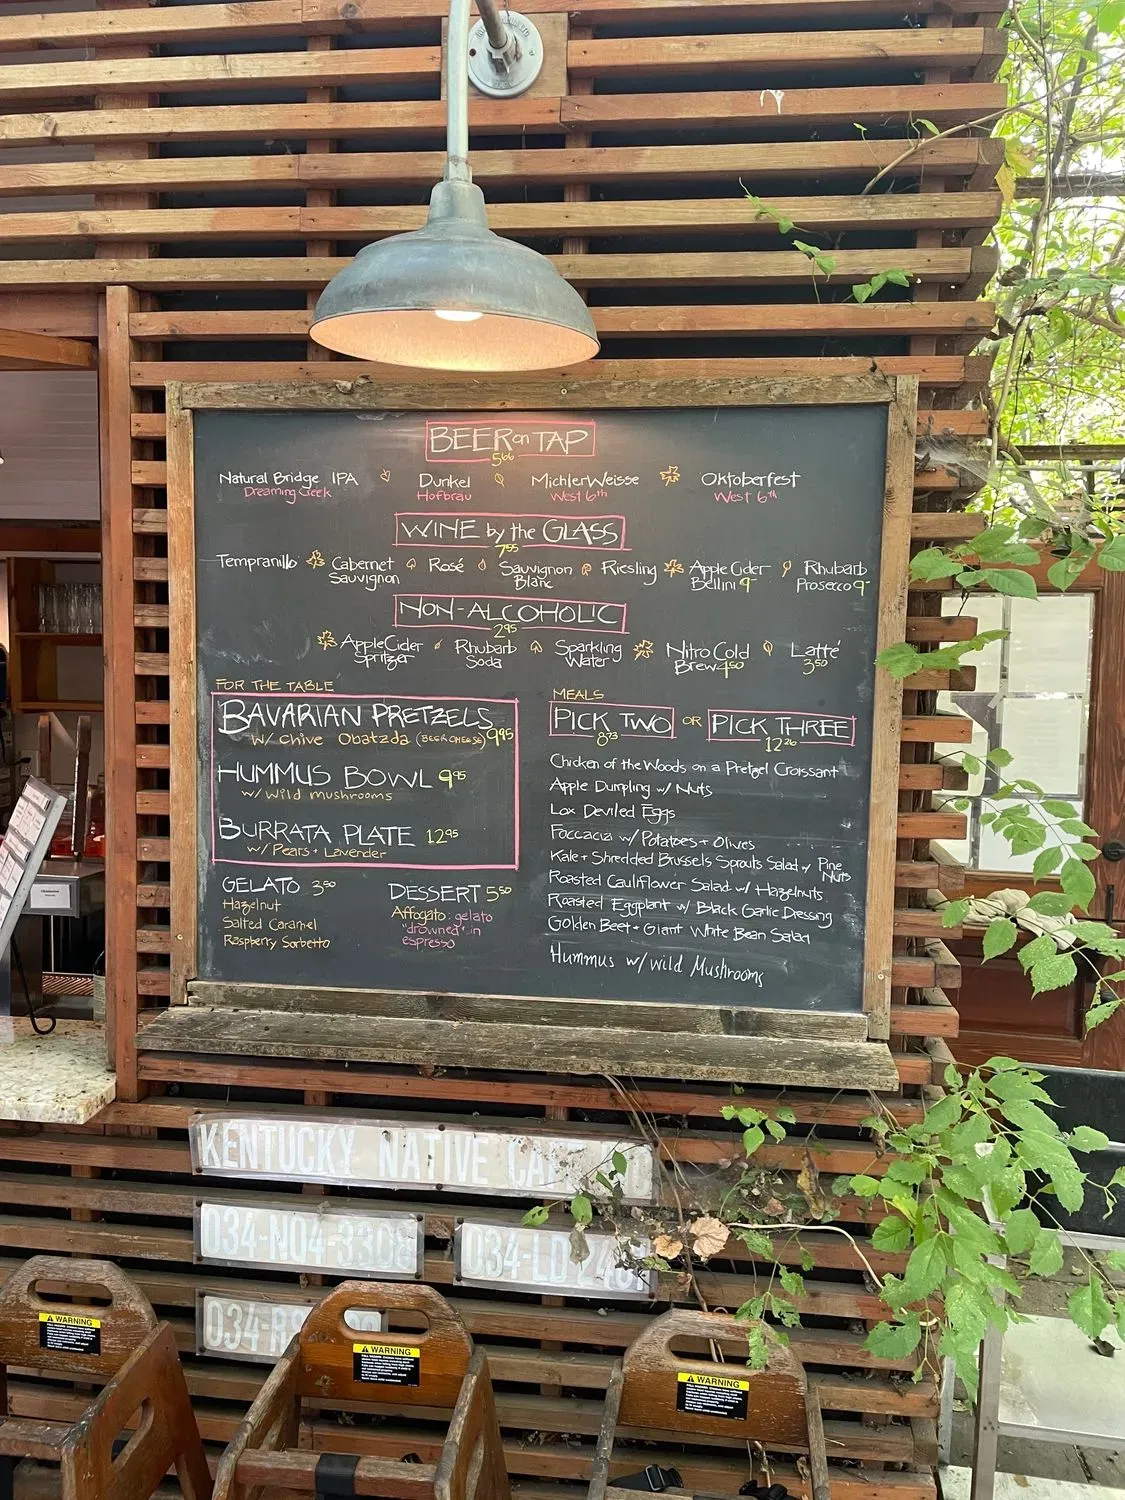 BEER on TAP
5.66
Natural Bridge IPA
Dreaming Creek
Dunkel
Hofbrau
MichlerWeisse
West 6th
Oktoberfest
West 6th
WINE by the GLASS
7.55
Tempranillo
Cabernet
Sauvignon
Rosé
Sauvignon
Blanc
Riesling
Apple Cider
Bellini 9-
Rhubarb
Prosecco 9-
NON-ALCOHOLIC
2.95
Apple Cider
Spritzer
Rhubarb
Soda
Sparkling
Water
Nitro Cold
Brew 4.50
Latté
3.50
FOR THE TABLE
BAVARIAN PRETZELS
w/ Chive Obatzda (BEER CHEESE) 9.95
HUMMUS BOWL 9.95
w/ Wild mushrooms
BURRATA PLATE 12.95
w/ Pears + Lavender
GELATO 3.50
Hazelnut
Salted Caramel
Raspberry Sorbetto
DESSERT 5.50
Affogato: gelato
"drowned" in
espresso
MEALS
PICK TWO OR PICK THREE
8.73
12.26
Chicken of the Woods on a Pretzel Croissant
Apple Dumpling w/ Nuts
Lox Deviled Eggs
Foccacia w/ Potatoes + Olives
Kale + Shredded Brussels Sprouts Salad w/ Pine
Nuts
Roasted Cauliflower Salad w/ Hazelnuts
Roasted Eggplant w/ Black Garlic Dressing
Golden Beet + Giant White Bean Salad
Hummus w/ Wild Mushrooms
KENTUCKY NATIVE
034-NO4-3308
034-LD
034-RS
WARNING
WARNING
WARNING